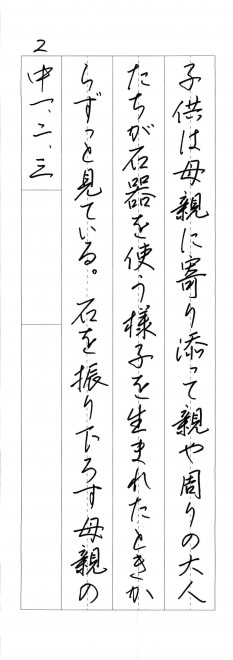 子供は母親に寄り添って親や周りの大人
たちが石器を使う様子を生まれたときか
らずっと見ている。石を振り下ろす母親の
2
中一、二、三